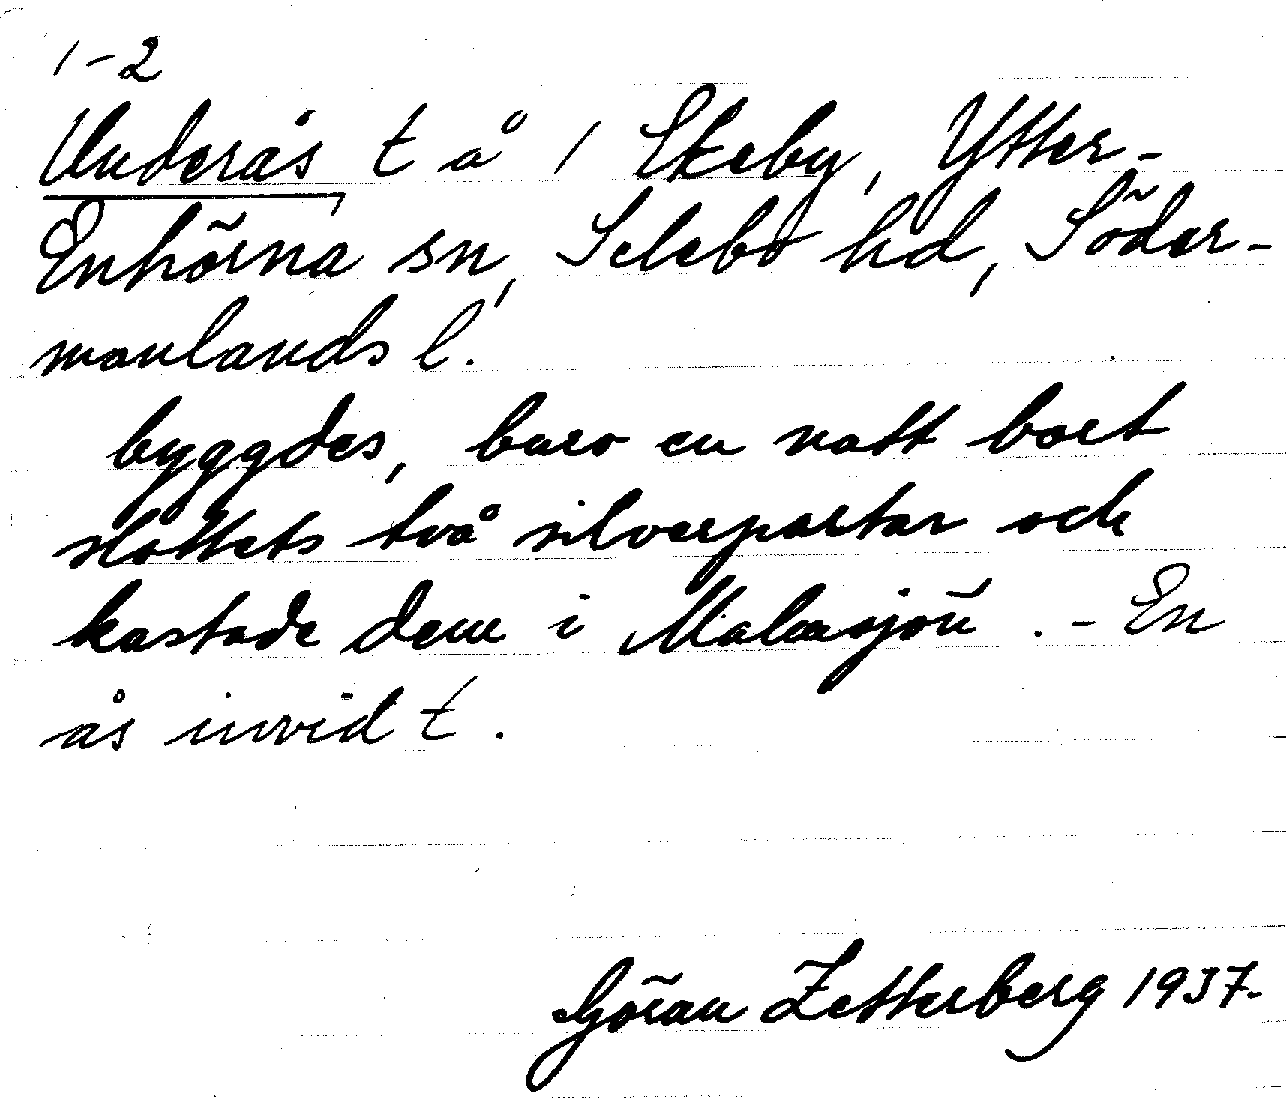 1-2
Underås t å / Skeby, Ytter-
Enhörna sn, Selebo hd, Söder-
manlands l.
byggdes, baro en natt bort
slottets två silverportar och
kastade dem i Malmsjön. - En
ås invid t.
Göran Zetterberg 1937.